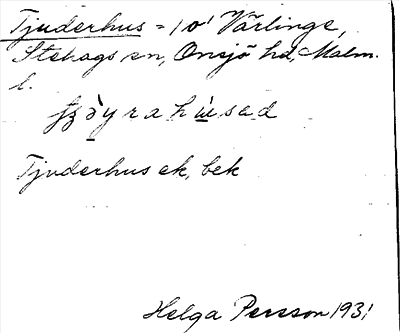 Tjuderhus = 1/0' Värlinge,
Stehags sn, Onsjö hd, Malm.
l.
ʃʒòyrahùsad
Tjuderhus ek, bek
Helga Persson 1931